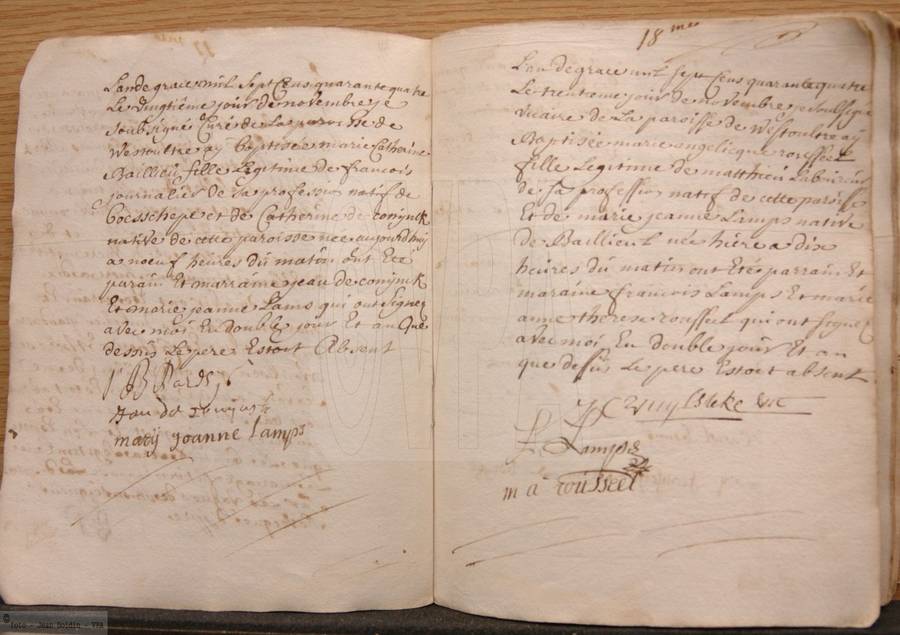 L'an de grace mil sept Cens quarante quatre
Le vingtième jour de novembre je
soubsigné Curé de La paroisse de
Westoultre ay baptisée marie Catherine
Bailleu fille Legitime de francois
journalier de sa profession natif de
boesschepe et de Catherine de coninck
native de cette paroisse nee aujourdhuy
a noeuf heures du matin ont Eté
parain Et marraine jean de coninck
Et marie jeanne Lams qui ont signez
avec moi En double jour Et an que
dessus Le pere Estoit Absent
jan de coninck
mary joanne lamps
18 mes
L'an de grace mil sept Cens quarante quatre
Le trentieme jour de novembre je soussigné
vicaire de La paroisse de Westoultre ay
Baptisée marie angelicque roussel
fille Legitime de matthieu
de sa profession natif de cette paroisse
Et de marie jeanne Lamps native
de Baillieul née hière a dix
heures du matin ont Etés parrain Et
maraine francois Lamps Et marie
anne therese roussel qui ont signez
avec moi En double jour Et an
que dessus Le pere Estoit absent
Lamps
m a roussel
© Foto - Jean Goldin - VPR